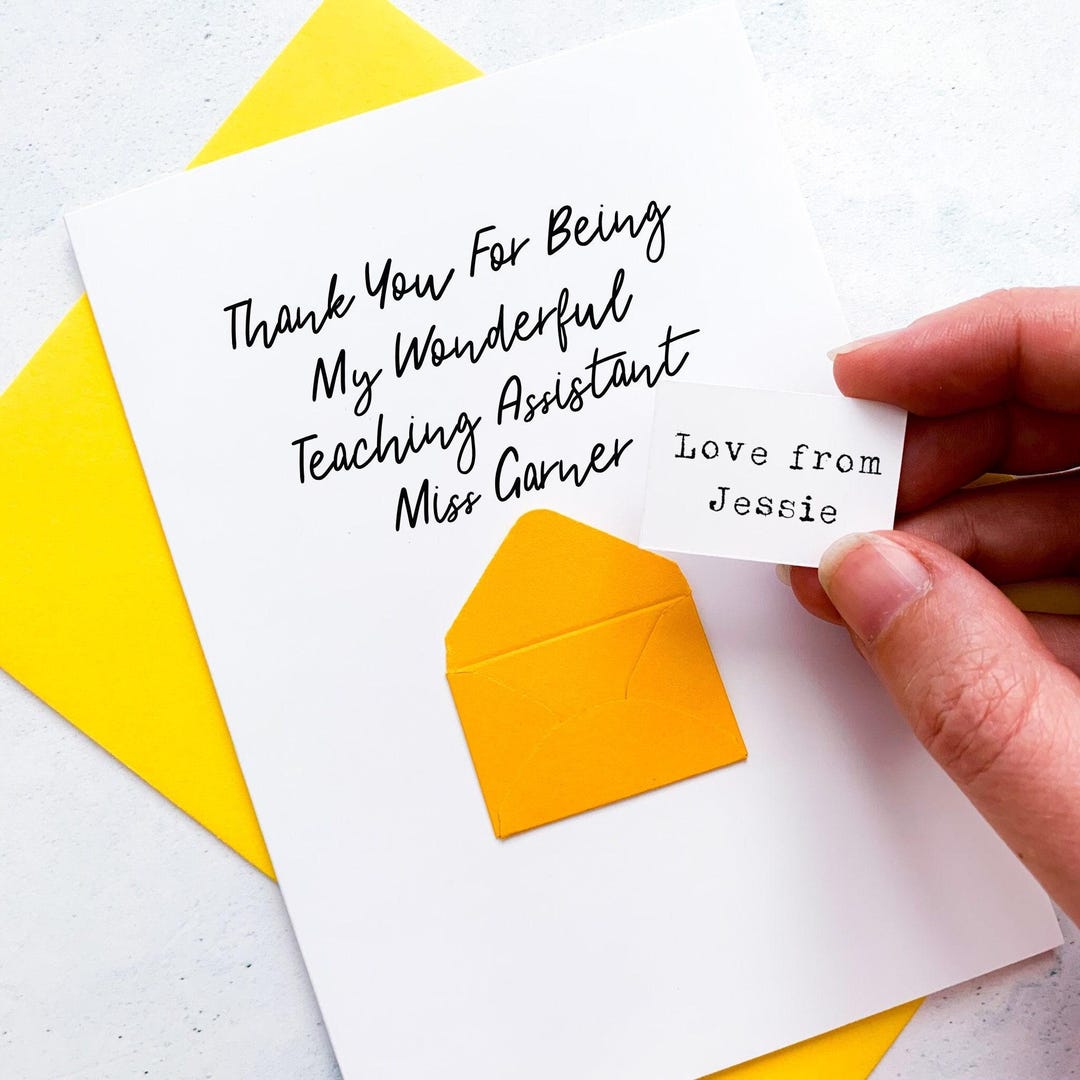 Thank You For Being
My Wonderful
Teaching Assistant
Miss Garner
Love from
Jessie